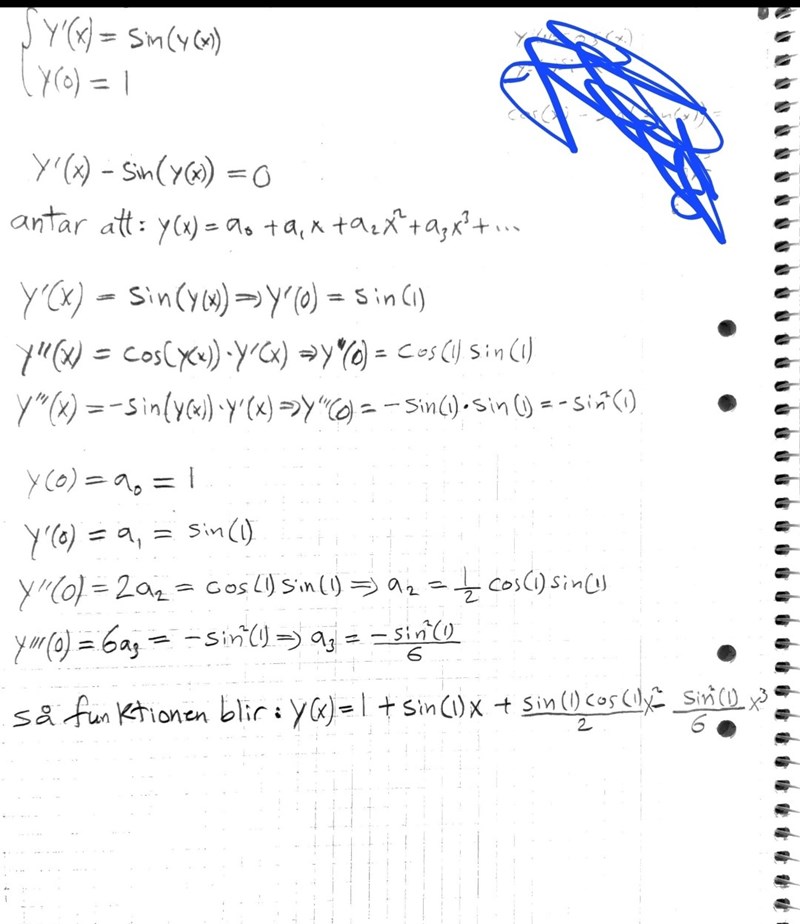 { y'(x) = sin(y(x))
y(0) = 1
y'(x) - sin(y(x)) = 0
antar att: y(x) = a₀ + a₁x + a₂x² + a₃x³ + ...
y'(x) = sin(y(x)) ⇒ y'(0) = sin(1)
y''(x) = cos(y(x))·y'(x) ⇒ y''(0) = cos(1) sin(1)
y'''(x) = -sin(y(x))·y'(x) ⇒ y'''(0) = -sin(1)·sin(1) = -sin²(1)
y(0) = a₀ = 1
y'(0) = a₁ = sin(1)
y''(0) = 2a₂ = cos(1) sin(1) ⇒ a₂ = 1/2 cos(1) sin(1)
y'''(0) = 6a₃ = -sin²(1) ⇒ a₃ = -sin²(1)/6
så funktionen blir: y(x) = 1 + sin(1)x + sin(1)cos(1)/2 x² - sin²(1)/6 x³